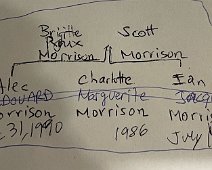 Brigitte Scott
Roux
Morrison Morrison
Alec Charlotte Ian
EDOUARD Marguerite Jacq
orrison Morrison Morris
31, 1990 1986 July